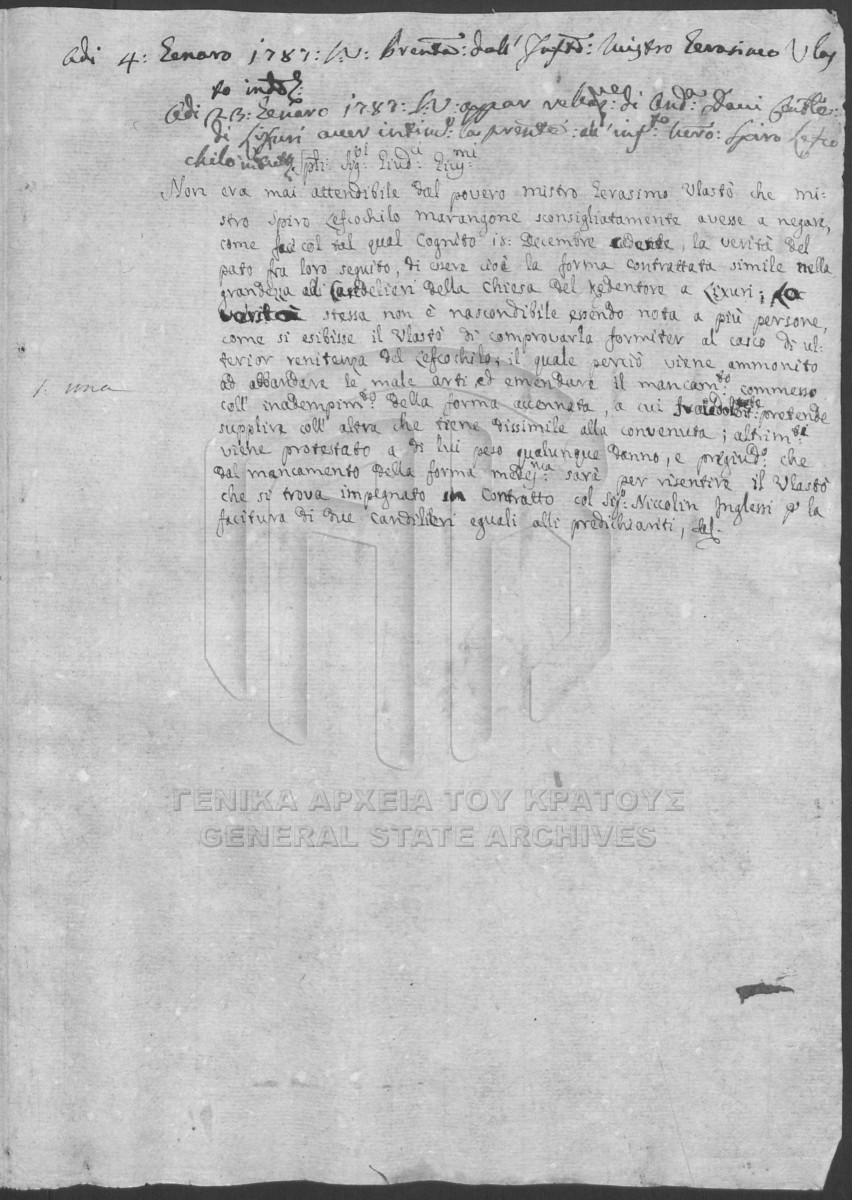 Adi 4: Genaro 1787: S:V: Prentã: dall' Infrõ: Mistro Gerasimo Vlas
to
Adi 23: Genaro 1787: S:V: appar di And.ª
di Lixuri aver intim.º la prente: all' inf.to Spiro Lefco
chilo
Non era mai attendibile dal povero mistro Gerasimo Vlastò che mi-
stro Spiro Lefcochilo marangone sconsigliatamente avesse a negare,
come fa col tal qual Cognito 18: Decembre la verità del
pato fra loro seguito, di essere cioè la forma contrattata simile nella
grandezza alli Candelieri della Chiesa del Redentore a Lixuri; La
verità stessa non è nascondibile essendo nota a più persone,
come si esibisse il Vlastò di comprovarla formiter al casco di ul:
terior renitenza del Lefcochilo; il quale perciò viene ammonito
ad abbandare le male arti ed emendare il mancam.to commesso
coll' inadempim.to della forma accennata, a cui pretende
supplira coll' altra che tiene dissimile alla convenuta; altrim.te
viene protestato a di lui peso qualunque danno, e pregiud.o che
dal mancamento della forma medes.ma sarà per risentire il Vlastò
che si trova impegnato in Contratto col Sig.r Niccolin Inglessi p' la
facitura di due candilieri eguali alli predichiariti,
1. una
ΓΕΝΙΚΑ ΑΡΧΕΙΑ ΤΟΥ ΚΡΑΤΟΥΣ
GENERAL STATE ARCHIVES